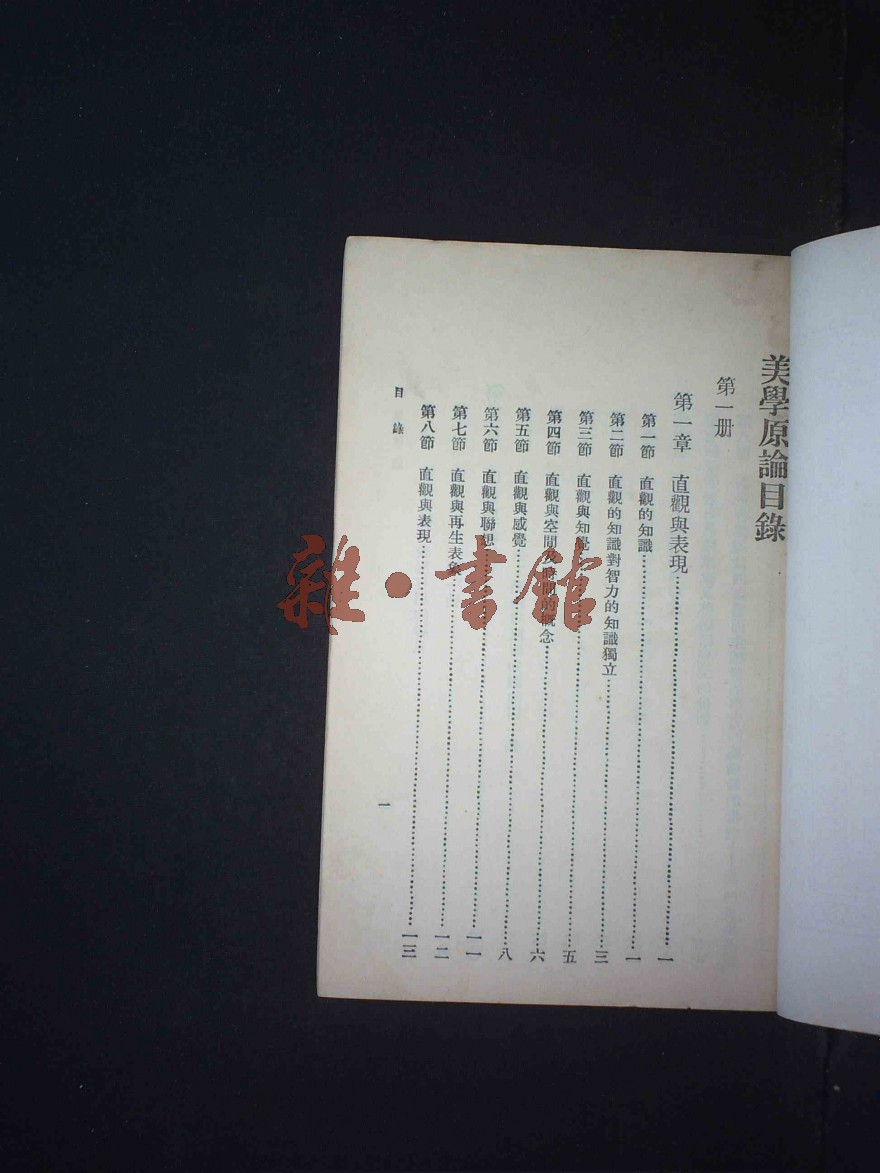 美學原論目錄
第一册
第一章 直觀與表現……一
第一節 直觀的知識……一
第二節 直觀的知識對智力的知識獨立……三
第三節 直觀與知覺……五
第四節 直觀與空間及時間的概念……六
第五節 直觀與感覺……八
第六節 直觀與聯想……一一
第七節 直觀與再生表象……一二
第八節 直觀與表現……一三
目錄
一
雜·書館